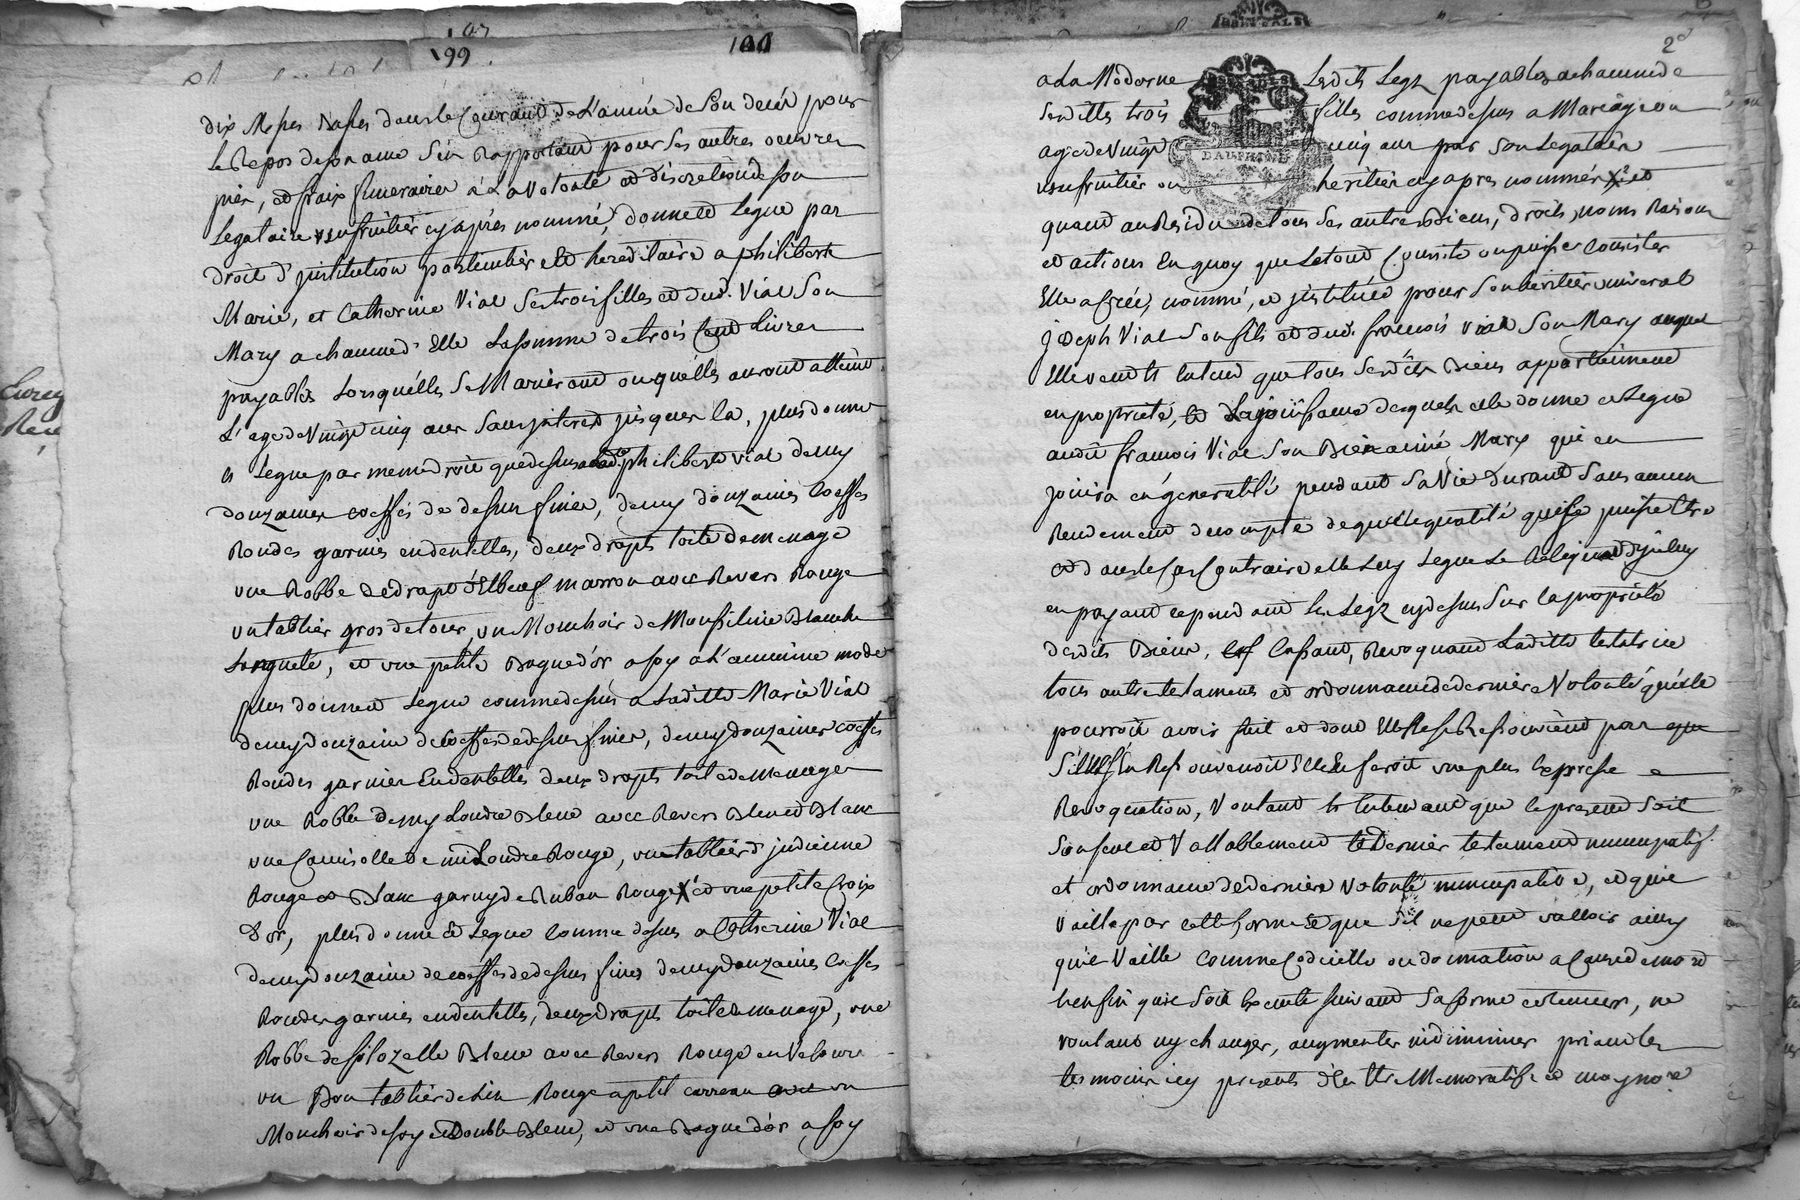 199
100
dix Messes basses dans le Courant de L'année de son decés pour
le Repos de son ame s'en Rapportant pour ses autres oeuvres
pies, et fraix funeraires á La volonté et discretion de son
Legataire usufruitier cy aprés nommé, donne et Legue par
droit d'jnstitution particuliere et hereditaire a philiberte
Marie, et Catherine Vial ses trois filles et dud. Vial son
Mary a chacune d'Elle La somme de trois Cent Livres
payables Lorsquélles se Marieront ou quélles auront atteint
L'age de Vingt cinq ans sans jnterest jusques la, plus donne
et Legue par meme droit que dessus a lad. philiberte vial demy
douzaines coeffes de dessus fines, demy douzaines Coeffes
Rondes garnies en dentelles, deux draps toile de menage
une Robbe de drapt d'Elbeuf marron avec Revers Rouge
un tablier gros de tour, un Mouchoir de Moussiline Blanche
, et une petite Bague d'or a soy a L'ancienne mode
plus donne et Legue comme dessus a Laditte Marie Vial
demy douzaine de Coeffes de dessus fines, demy douzaines coeffes
Rondes garnies En dentelles deux drapts toile de menage
une Robbe demy Londre Bleue avec Revers Bleu et Blanc
une Camisolle de mi Londre Rouge, un tablier d'jndienne
Rouge et Blanc garny de Ruban Rouge X et une petite Croix
d'or, plus donne et Legue Comme dessus a Catherine Vial
demy douzaine de coeffes de dessus fines demy douzaines Coeffes
Rondes garnies en dentelles, deux drapts toile de menage, une
Robbe de filozelle Bleue avec Revers Rouge en Velours
un Bon tablier de Lin Rouge a petit carreau un
Mouchoir de soy Double Bleu, et une Bague d'or a soy
2e
a La Moderne Lesdits Legz payables a chacune de
sesdittes trois filles comme dessus a Mariage ou
age de Vingt cinq ans par son Legataire
usufruitier ou heritier cy apres nommés X et
DAUPHINE
quant au Residu de tous ses autres Biens, droits, noms Raisons
et actions En quoy que Le tout Consiste ou puisse Consister
Elle a Créé, nommé, et jnstitué pour son heritier universel
joseph Vial son fils et dud. francois vial son Mary auquel
Elle veut Et Entend que tous sesdits Biens appartiennent
en proprieté, et La joüissance desquels elle donne et Legue
audit francois Vial son Bien aimé Mary qui en
jouira en géneralité pendant sa Vie Durant sans aucun
Rendement de compte de quelle qualité quil se puisse Etre
et au cas Contraire elle Luy Legue Le Reliquat d'jceluy
en payant cependant Les Legz cy dessus Sur la proprieté
desdits Biens, Cassant, Revoquant Laditte testatrice
tous autre testaments et ordonnance de derniere Volonté quélle
pourroit avoir fait et dont Elle se Ressouvient par que
s'il s'En Ressouvenoit Elle En feroit une plus Expresse
Revoquation, Voulant Et Entendant que le present soit
son seul et Vallablement Le Dernier testament nuncupatif.
et ordonnance de derniere volonté nuncupative, et qu'il
vaille par cette forme et que s'il ne peut valloir ainsy
qu'il Vaille comme Codicille ou donnation a Cause de mort
Et Enfin qu'il soit Executé suivant sa forme et teneur, ne
voulant ny changer, augmenter ni diminuer priant les
tesmoins icy presents d'En Etre Memoratifs et moy nore